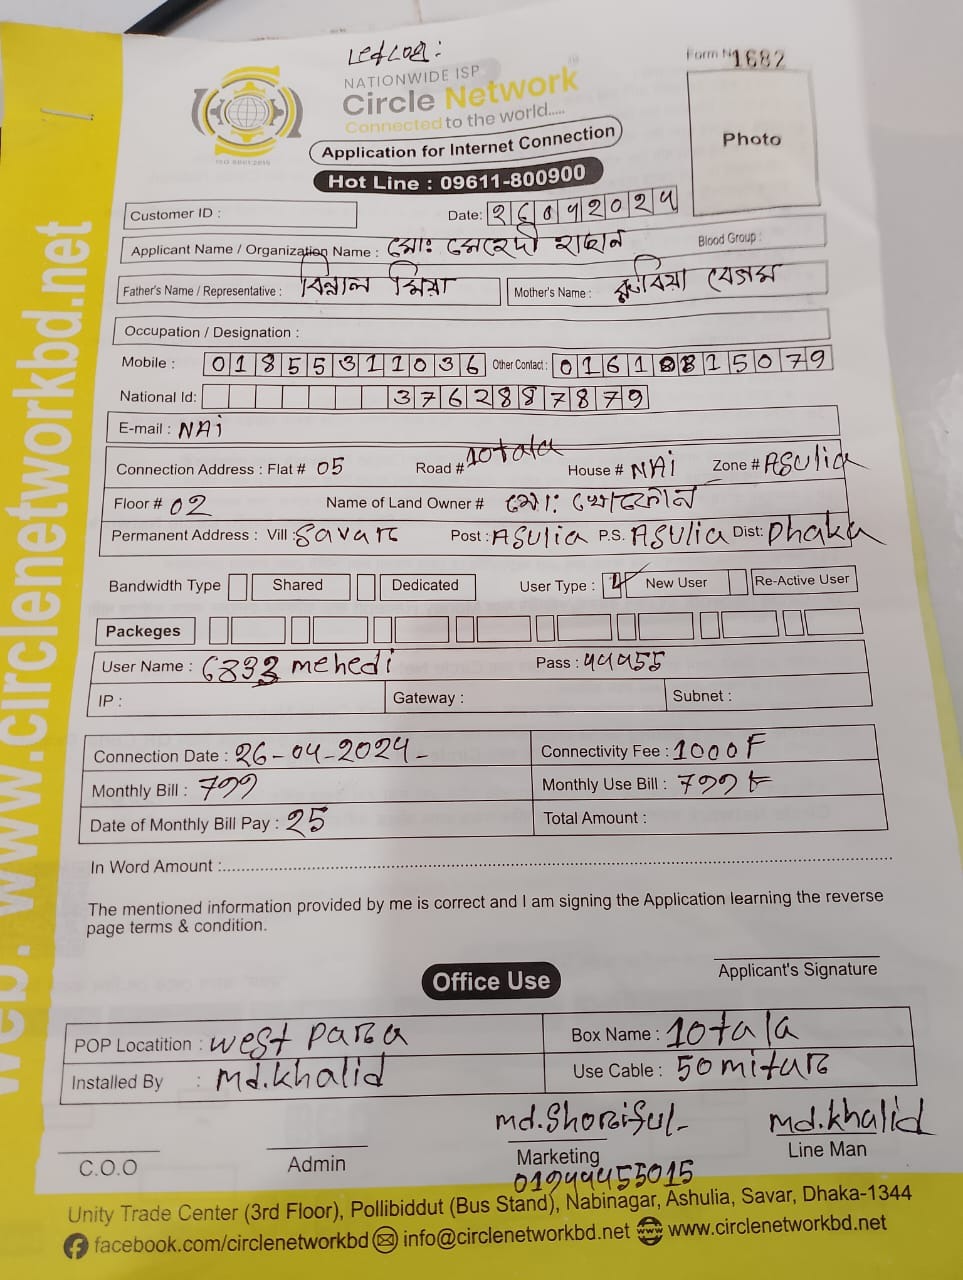 Form No 1682
NATIONWIDE ISP
Circle Network
Connected to the world.....
ISO 9001:2015
Application for Internet Connection
Photo
Hot Line : 09611-800900
Customer ID :
Date: 26042024
Applicant Name / Organization Name : মোঃ মেহেদী হাছান
Blood Group :
Father's Name / Representative : মিয়া
Mother's Name : বেগম
Occupation / Designation :
Mobile : 01855311036 Other Contact : 01618815079
National Id: 3762887879
E-mail : NAi
Connection Address : Flat # 05 Road # 10tala House # NAi Zone # ASULia
Floor # 02 Name of Land Owner # মোঃ খোকোন
Permanent Address : Vill : Savar Post : ASULia P.S. ASULia Dist: Dhaka
Bandwidth Type Shared Dedicated User Type : New User Re-Active User
Packeges
User Name : 6833mehedi Pass : 44455
IP : Gateway : Subnet :
Connection Date : 26-04-2024- Connectivity Fee : 1000F
Monthly Bill : 799 Monthly Use Bill : 799 F
Date of Monthly Bill Pay : 25 Total Amount :
In Word Amount :
The mentioned information provided by me is correct and I am signing the Application learning the reverse
page terms & condition.
Applicant's Signature
Office Use
POP Locatition : west para Box Name : 10tala
Installed By : md.khalid Use Cable : 50mitur
md.Shoriful- md.khalid
C.O.O Admin Marketing Line Man
01944455015
Unity Trade Center (3rd Floor), Pollibiddut (Bus Stand), Nabinagar, Ashulia, Savar, Dhaka-1344
facebook.com/circlenetworkbd info@circlenetworkbd.net www.circlenetworkbd.net
web: www.circlenetworkbd.net